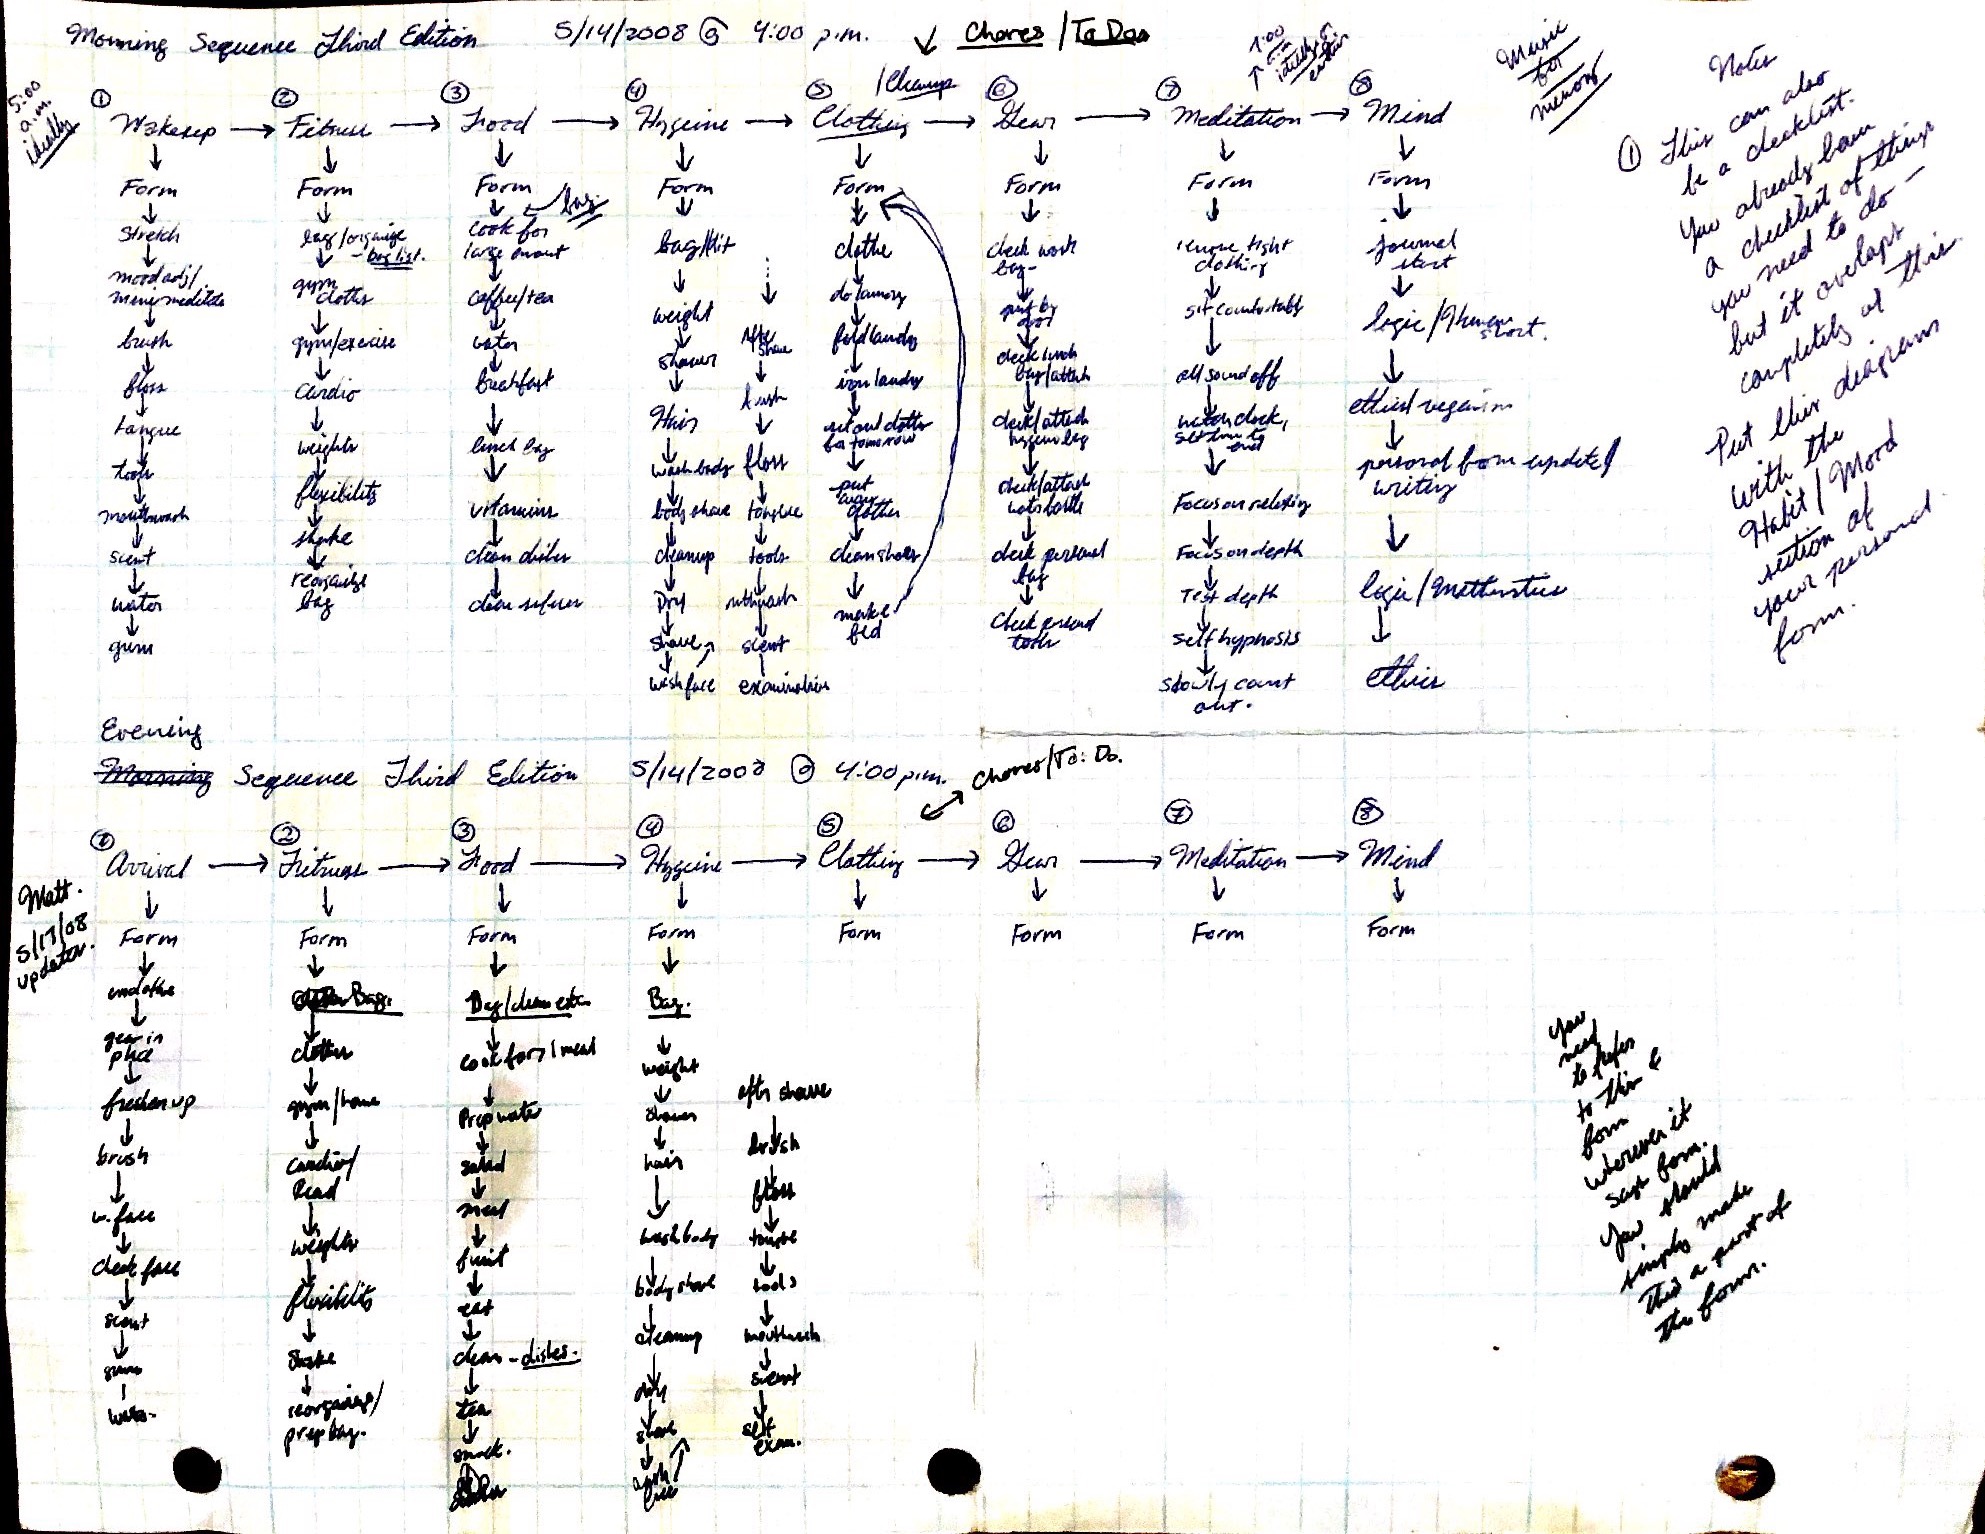 Morning Sequence Third Edition 5/14/2008 @ 4:00 p.m. Chores/To Dos
5:00 a.m. ideally
1:00
Music for memory
/Cleanup
① Wakeup → ② Fitness → ③ Food → ④ Hygeine → ⑤ Clothing → ⑥ Gear → ⑦ Meditation → ⑧ Mind
Form
stretch
mood adj/
meditate
brush
floss
tongue
tools
mouthwash
scent
water
gum
Form
bag/organize
- bag list.
gym cloths
gym/exercise
cardio
weights
flexibility
shake
reorganize
bag
Form
bag
cook for
large amount
coffee/tea
water
breakfast
lunch bag
vitamins
clean dishes
clean
Form
bag/kit
weight
shower
Hair
wash body
body shave
cleanup
Dry
shave
wash face
After shave
brush
floss
tongue
tools
mthwash
scent
examination
Form
clothe
do laundry
fold laundry
iron laundry
set out cloths
for tomorrow
put away
clothes
clean shoes
make
bed
Form
check work
bag-
put by
door
check lunch
bag/attach
check/attach
hygeine bag
check/attach
water bottle
check personal
bag
check personal
tools
Form
remove tight
clothing
sit comfortably
all sound off
watch clock,
set time to
end
Focus on relaxing
Focus on depth
Test depth
self hypnosis
slowly count
out.
Form
journal
start
logic/
short.
ethics/veganism
personal form update/
writing
logic/Mathematics
ethics
Notes
① This can also
be a checklist.
You already have
a checklist of things
you need to do –
but it overlaps
completely w/ this
Put this diagram
with the
Habit/Mood
section of
your personal
form.
Evening
Morning Sequence Third Edition 5/14/2008 @ 4:00 p.m. Chores/To: Do.
① Arrival → ② Fitness → ③ Food → ④ Hygeine → ⑤ Clothing → ⑥ Gear → ⑦ Meditation → ⑧ Mind
Matt.
5/17/08
updates.
Form
gear in
place
freshen up
brush
w. face
check face
scent
gum
water
Form
Bag.
clothes
gym/home
Cardio/
Read
weights
flexibility
Shake
reorganize/
prep bag.
Form
Bag/clean
cook for 1 meal
Prep water
salad
meal
fruit
eat
clean - dishes.
tea
snack.
Form
Bag.
weight
shower
hair
wash body
body shave
cleanup
dry
shave
wash
face
aftr shave
brush
floss
tongue
tools
mouthwash
scent
self
exam.
Form
Form
Form
Form
You
need
to refer
to this &
form
wherever it
says form.
You should
simply make
this a part of
the form.